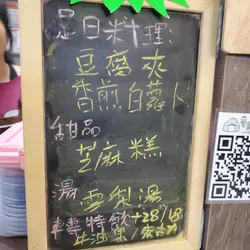 是日料理:
豆腐爽
香煎白蘿卜
甜品
芝麻糕
湯
雪梨湯
轉特飲+28/18
牛油果/朱古力